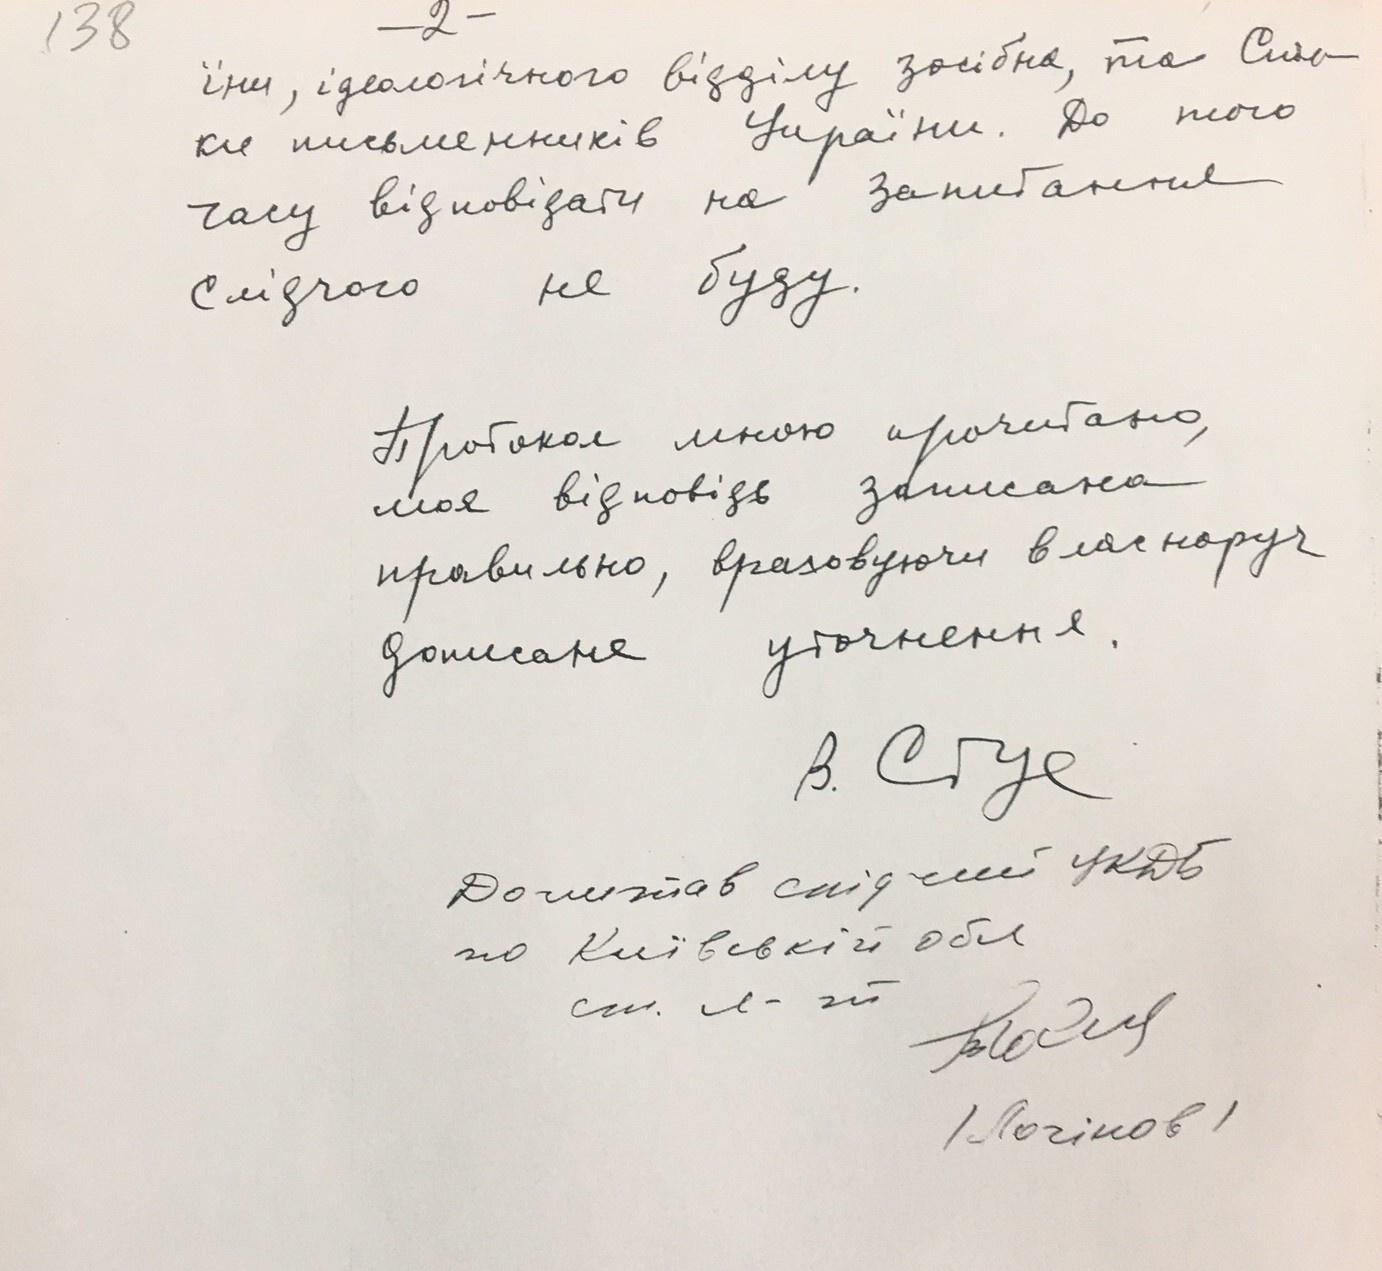 138
—2—
їни, ідеологічного відділу зосібна, та Спіл-
ки письменників України. До того
часу відповідати на запитання
слідчого не буду.
Протокол мною прочитано,
моя відповідь записана
правильно, враховуючи власноруч
дописане уточнення.
В. Стус
Допитав слідчий УКДБ
по Київській обл
ст. л-нт
/Логінов/